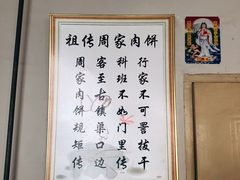 祖传周家肉饼
行家不可拔干
科班不如门里传
客至古镇渠口边
周家肉饼规短传